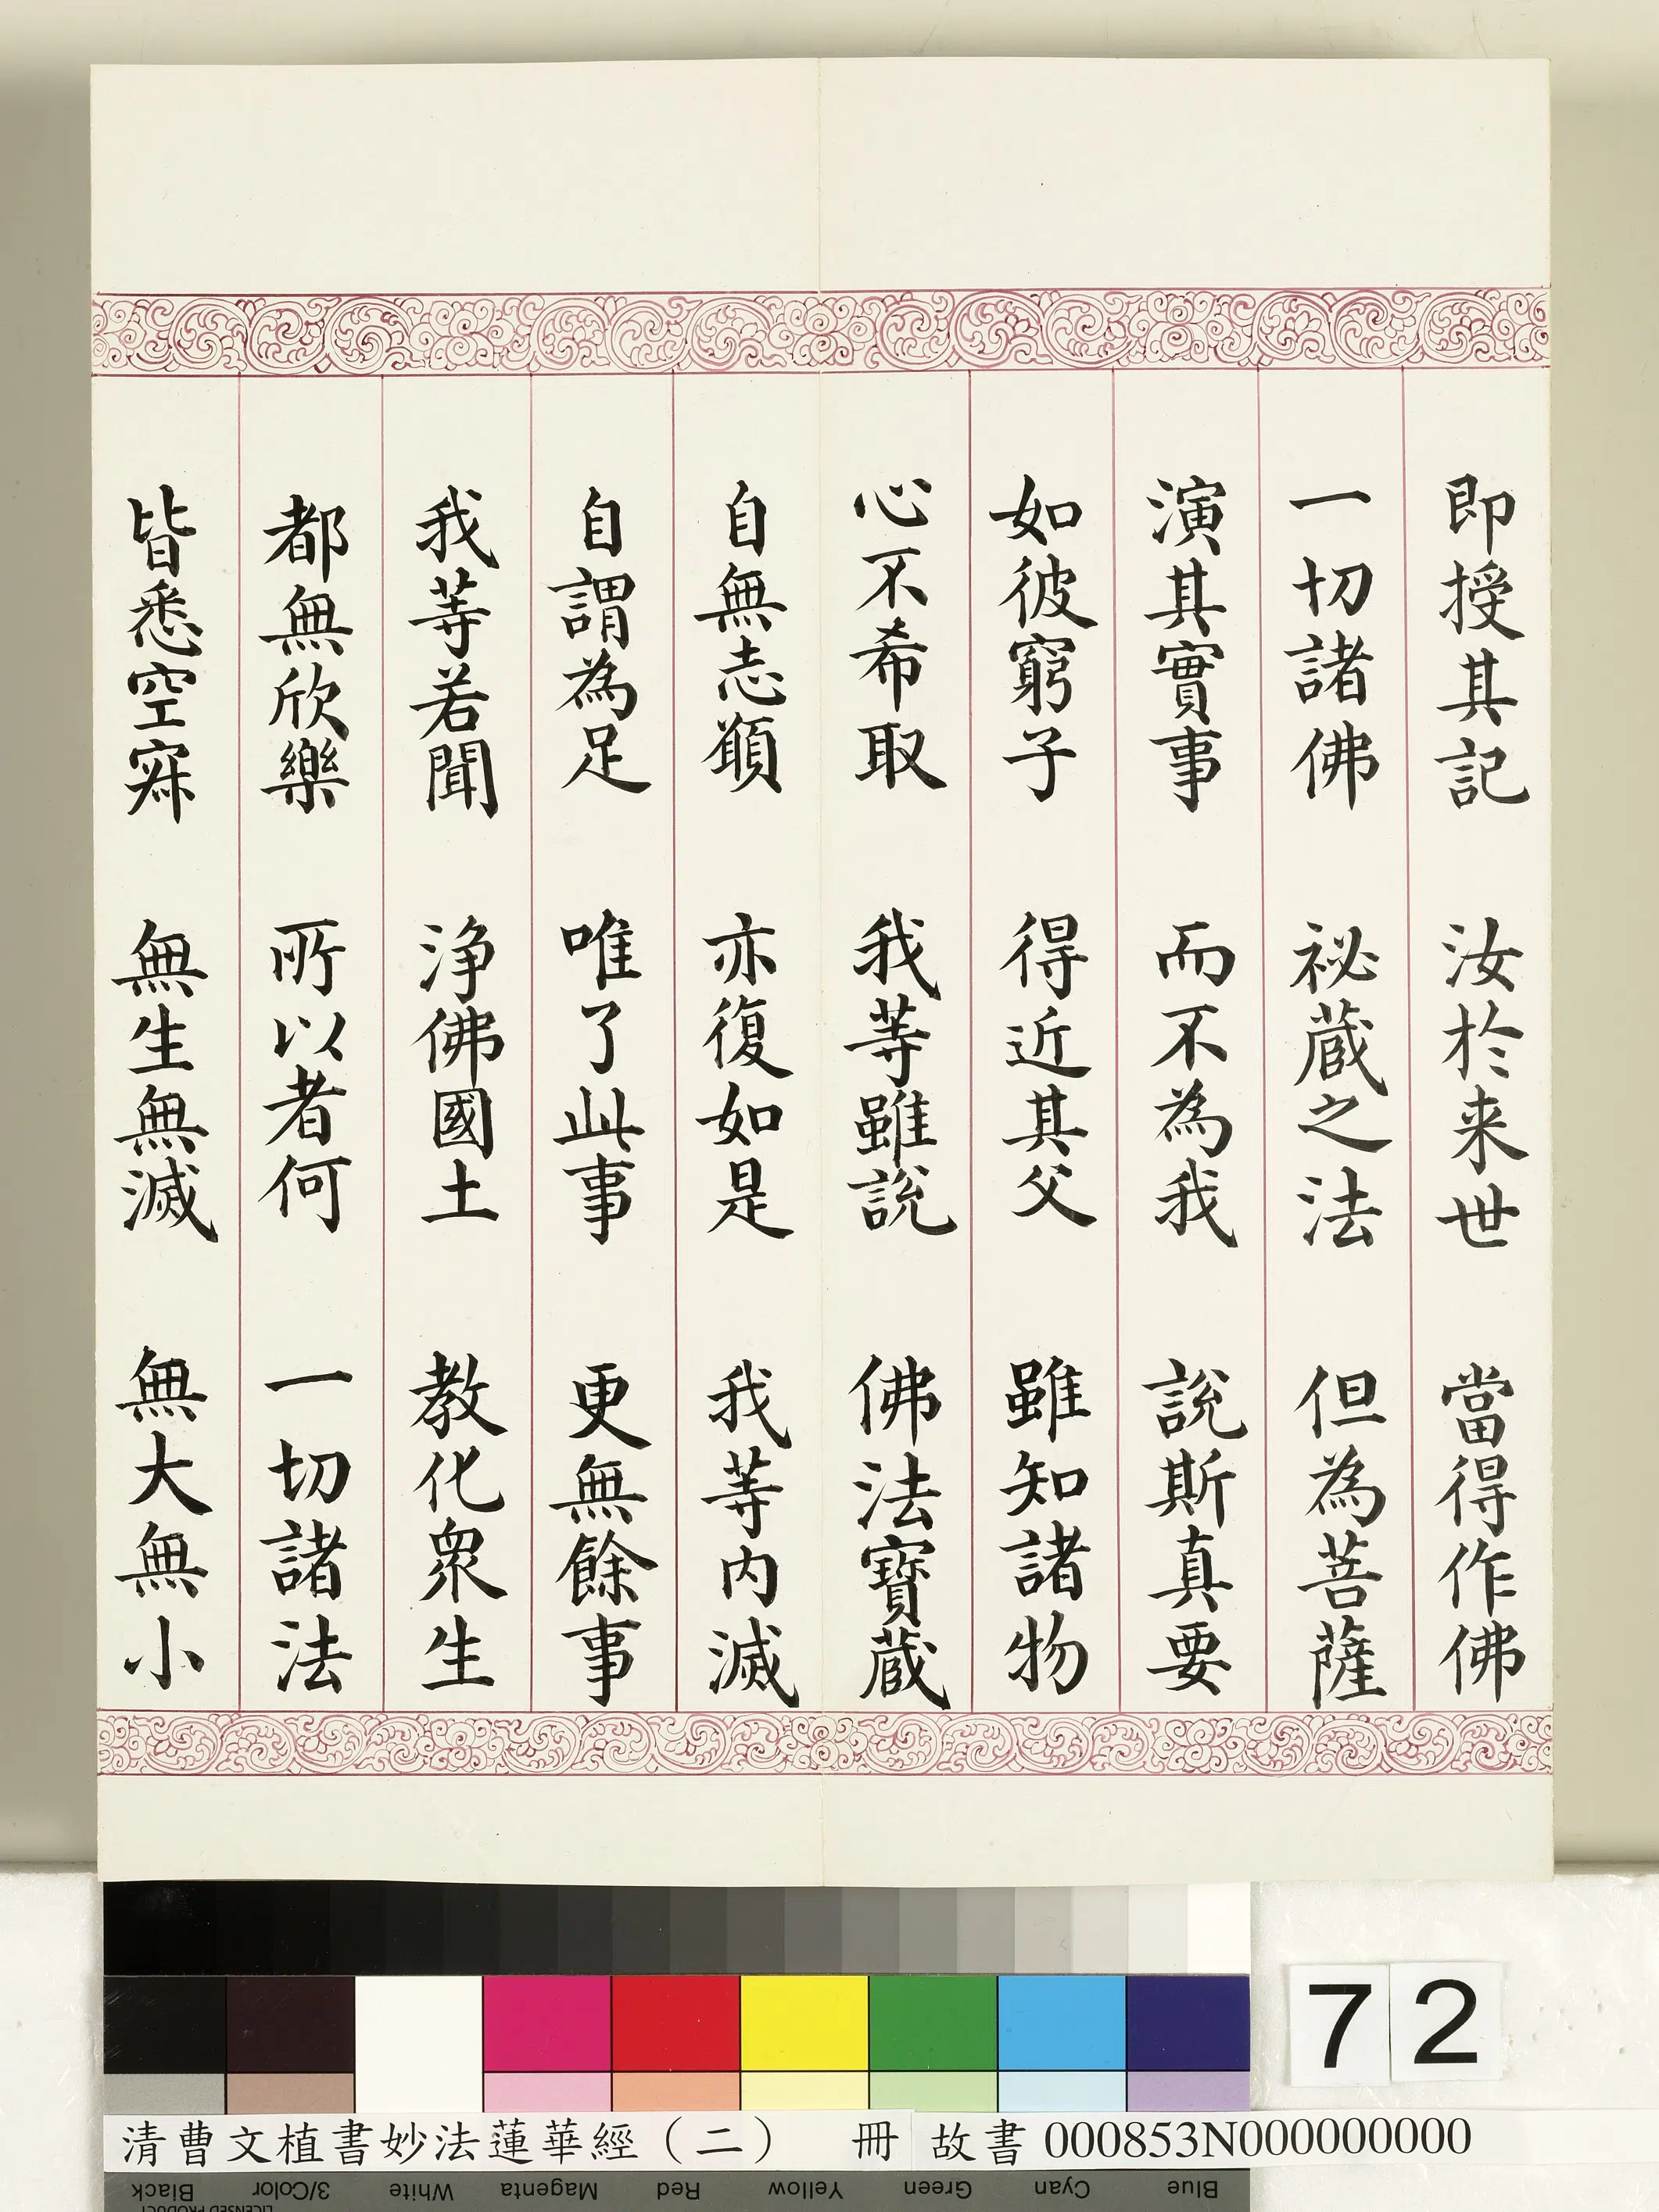 即授其記 汝於来世 當得作佛
一切諸佛 祕蔵之法 但為菩薩
演其實事 而不為我 說斯真要
如彼窮子 得近其父 雖知諸物
心不希取 我等雖說 佛法寶蔵
自無志願 亦復如是 我等内滅
自謂為足 唯了此事 更無餘事
我等若聞 淨佛國土 教化眾生
都無欣樂 所以者何 一切諸法
皆悉空寂 無生無滅 無大無小
72
清曹文植書妙法蓮華經（二） 冊 故書 000853N000000000
Black 3/Color White Magenta Red Yellow Green Cyan Blue
LICENSED PRODUCT